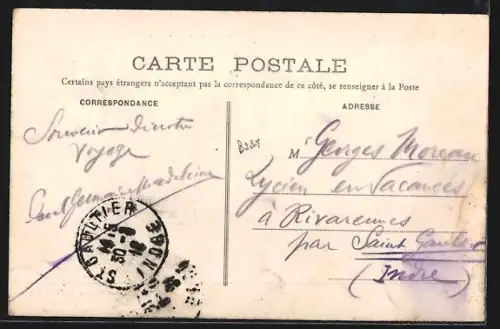 CARTE POSTALE
Certains pays étrangers n'acceptant pas la correspondance de ce côté, se renseigner à la Poste
CORRESPONDANCE
ADRESSE
Souvenir
voyage
M Georges Moreau
Lycien en Vacances
à Rivarennes
par Saint Gaultier
(Indre)
ST GAULTIER
INDRE